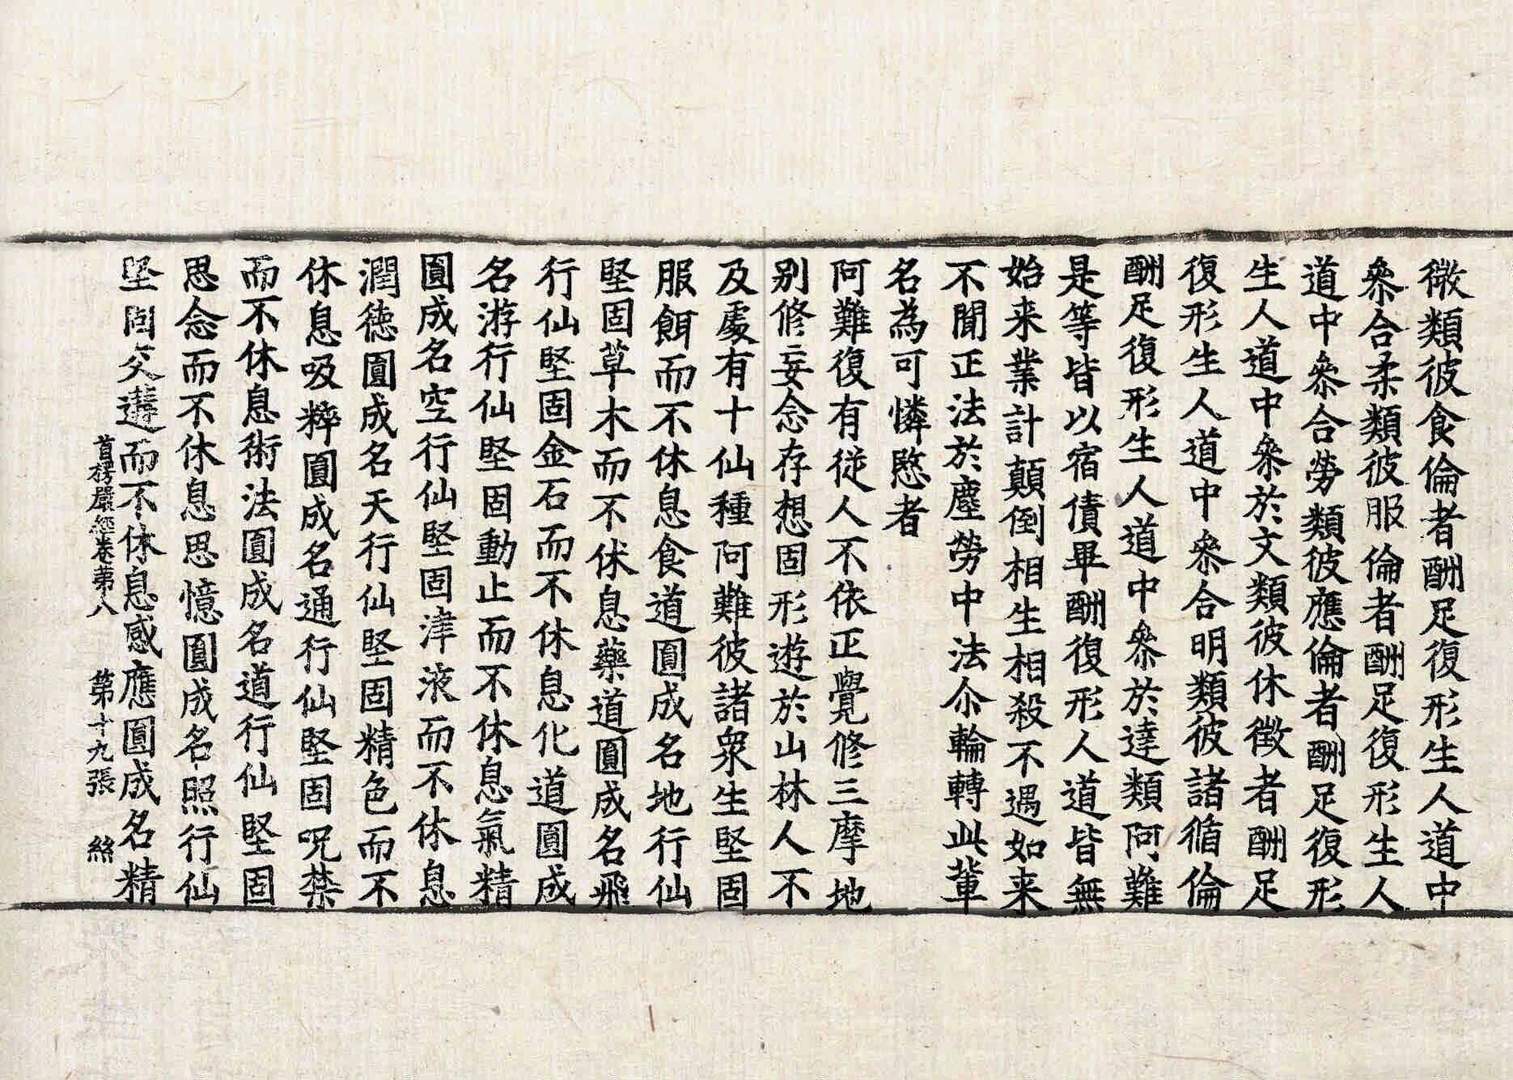 微類彼食倫者酬足復形生人道中
叅合柔類彼服倫者酬足復形生人
道中叅合勞類彼應倫者酬足復形
生人道中叅於文類彼休徵者酬足
復形生人道中叅合明類彼諸循倫
酬足復形生人道中叅於達類阿難
是等皆以宿債畢酬復形人道皆無
始来業計顛倒相生相殺不遇如来
不聞正法於塵勞中法尒輪轉此輩
名為可憐愍者
阿難復有従人不依正覺修三摩地
别修妄念存想固形遊於山林人不
及處有十仙種阿難彼諸衆生堅固
服餌而不休息食道圓成名地行仙
堅固草木而不休息藥道圓成名飛
行仙堅固金石而不休息化道圓成
名游行仙堅固動止而不休息氣精
圓成名空行仙堅固津液而不休息
潤德圓成名天行仙堅固精色而不
休息吸粹圓成名通行仙堅固呪禁
而不休息術法圓成名道行仙堅固
思念而不休息思憶圓成名照行仙
堅固交遘而不休息感應圓成名精
首楞嚴經卷苐八 第十九張 絲